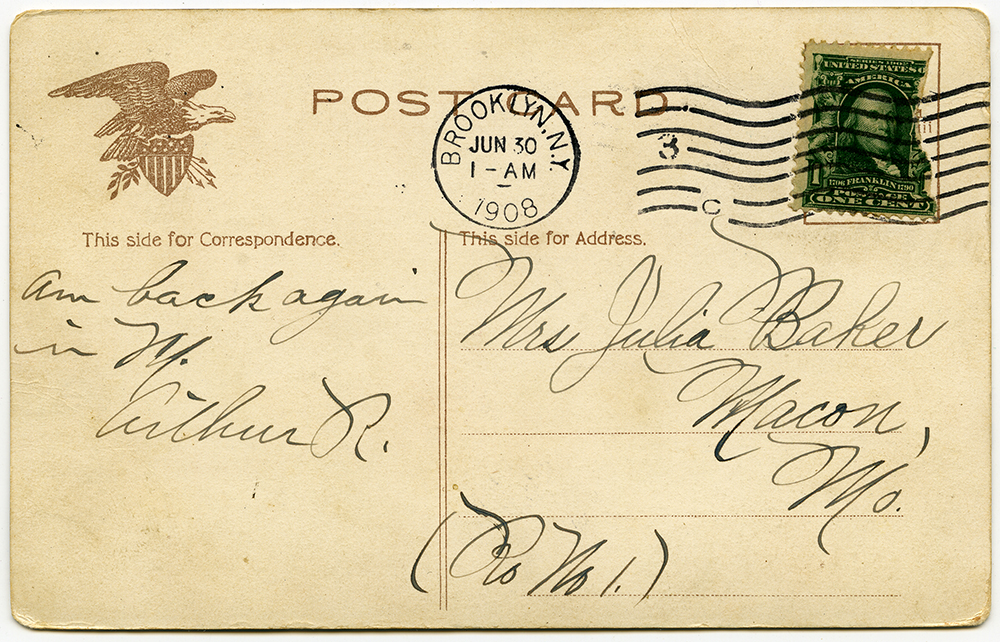 POST CARD
BROOKLYN, N.Y.
JUN 30
1-AM
1908
3
C
SERIES 1902
UNITED STATES
AMERIC
1706 FRANKLIN 1790
POSTAGE
ONE CENT
This side for Correspondence.
am back again
in N.
Arthur R.
This side for Address.
Mrs Julia Baker
Macon,
Mo.
(Ro No 1.)